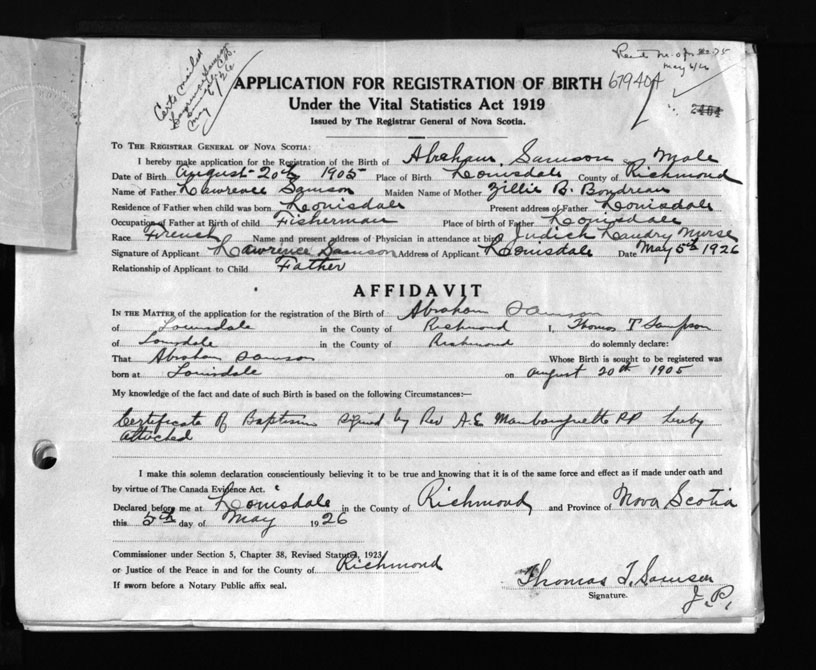 Certs mailed
May 6/26
May 6/26
APPLICATION FOR REGISTRATION OF BIRTH 67940A
Under the Vital Statistics Act 1919
2404
Issued by The Registrar General of Nova Scotia.
TO THE REGISTRAR GENERAL OF NOVA SCOTIA:
I hereby make application for the Registration of the Birth of Abraham Samson Male
Date of Birth August 20th 1905 Place of Birth Louisdale County of Richmond
Name of Father Lawrence Samson Maiden Name of Mother Zillie B. Boudreau
Residence of Father when child was born Louisdale Present address of Father Louisdale
Occupation of Father at Birth of child Fisherman Place of birth of Father Louisdale
Race French Name and present address of Physician in attendance at birth Judich Landry Nurse
Signature of Applicant Lawrence Samson Address of Applicant Louisdale Date May 5th 1926
Relationship of Applicant to Child Father
AFFIDAVIT
IN THE MATTER of the application for the registration of the Birth of Abraham Samson
of Louisdale in the County of Richmond I, Thomas T Sampson
of Louisdale in the County of Richmond do solemnly declare:
That Abraham Samson Whose Birth is sought to be registered was
born at Louisdale on August 20th 1905
My knowledge of the fact and date of such Birth is based on the following Circumstances:—
Certificate of Baptism signed by Rev A.E PP hereby
attached
I make this solemn declaration conscientiously believing it to be true and knowing that it is of the same force and effect as if made under oath and
by virtue of The Canada Evidence Act.
Declared before me at Louisdale in the County of Richmond and Province of Nova Scotia
this 5th day of May 1926
Commissioner under Section 5, Chapter 38, Revised Statutes, 1923
or Justice of the Peace in and for the County of Richmond
If sworn before a Notary Public affix seal.
Thomas T. Samson
Signature.
J.P.